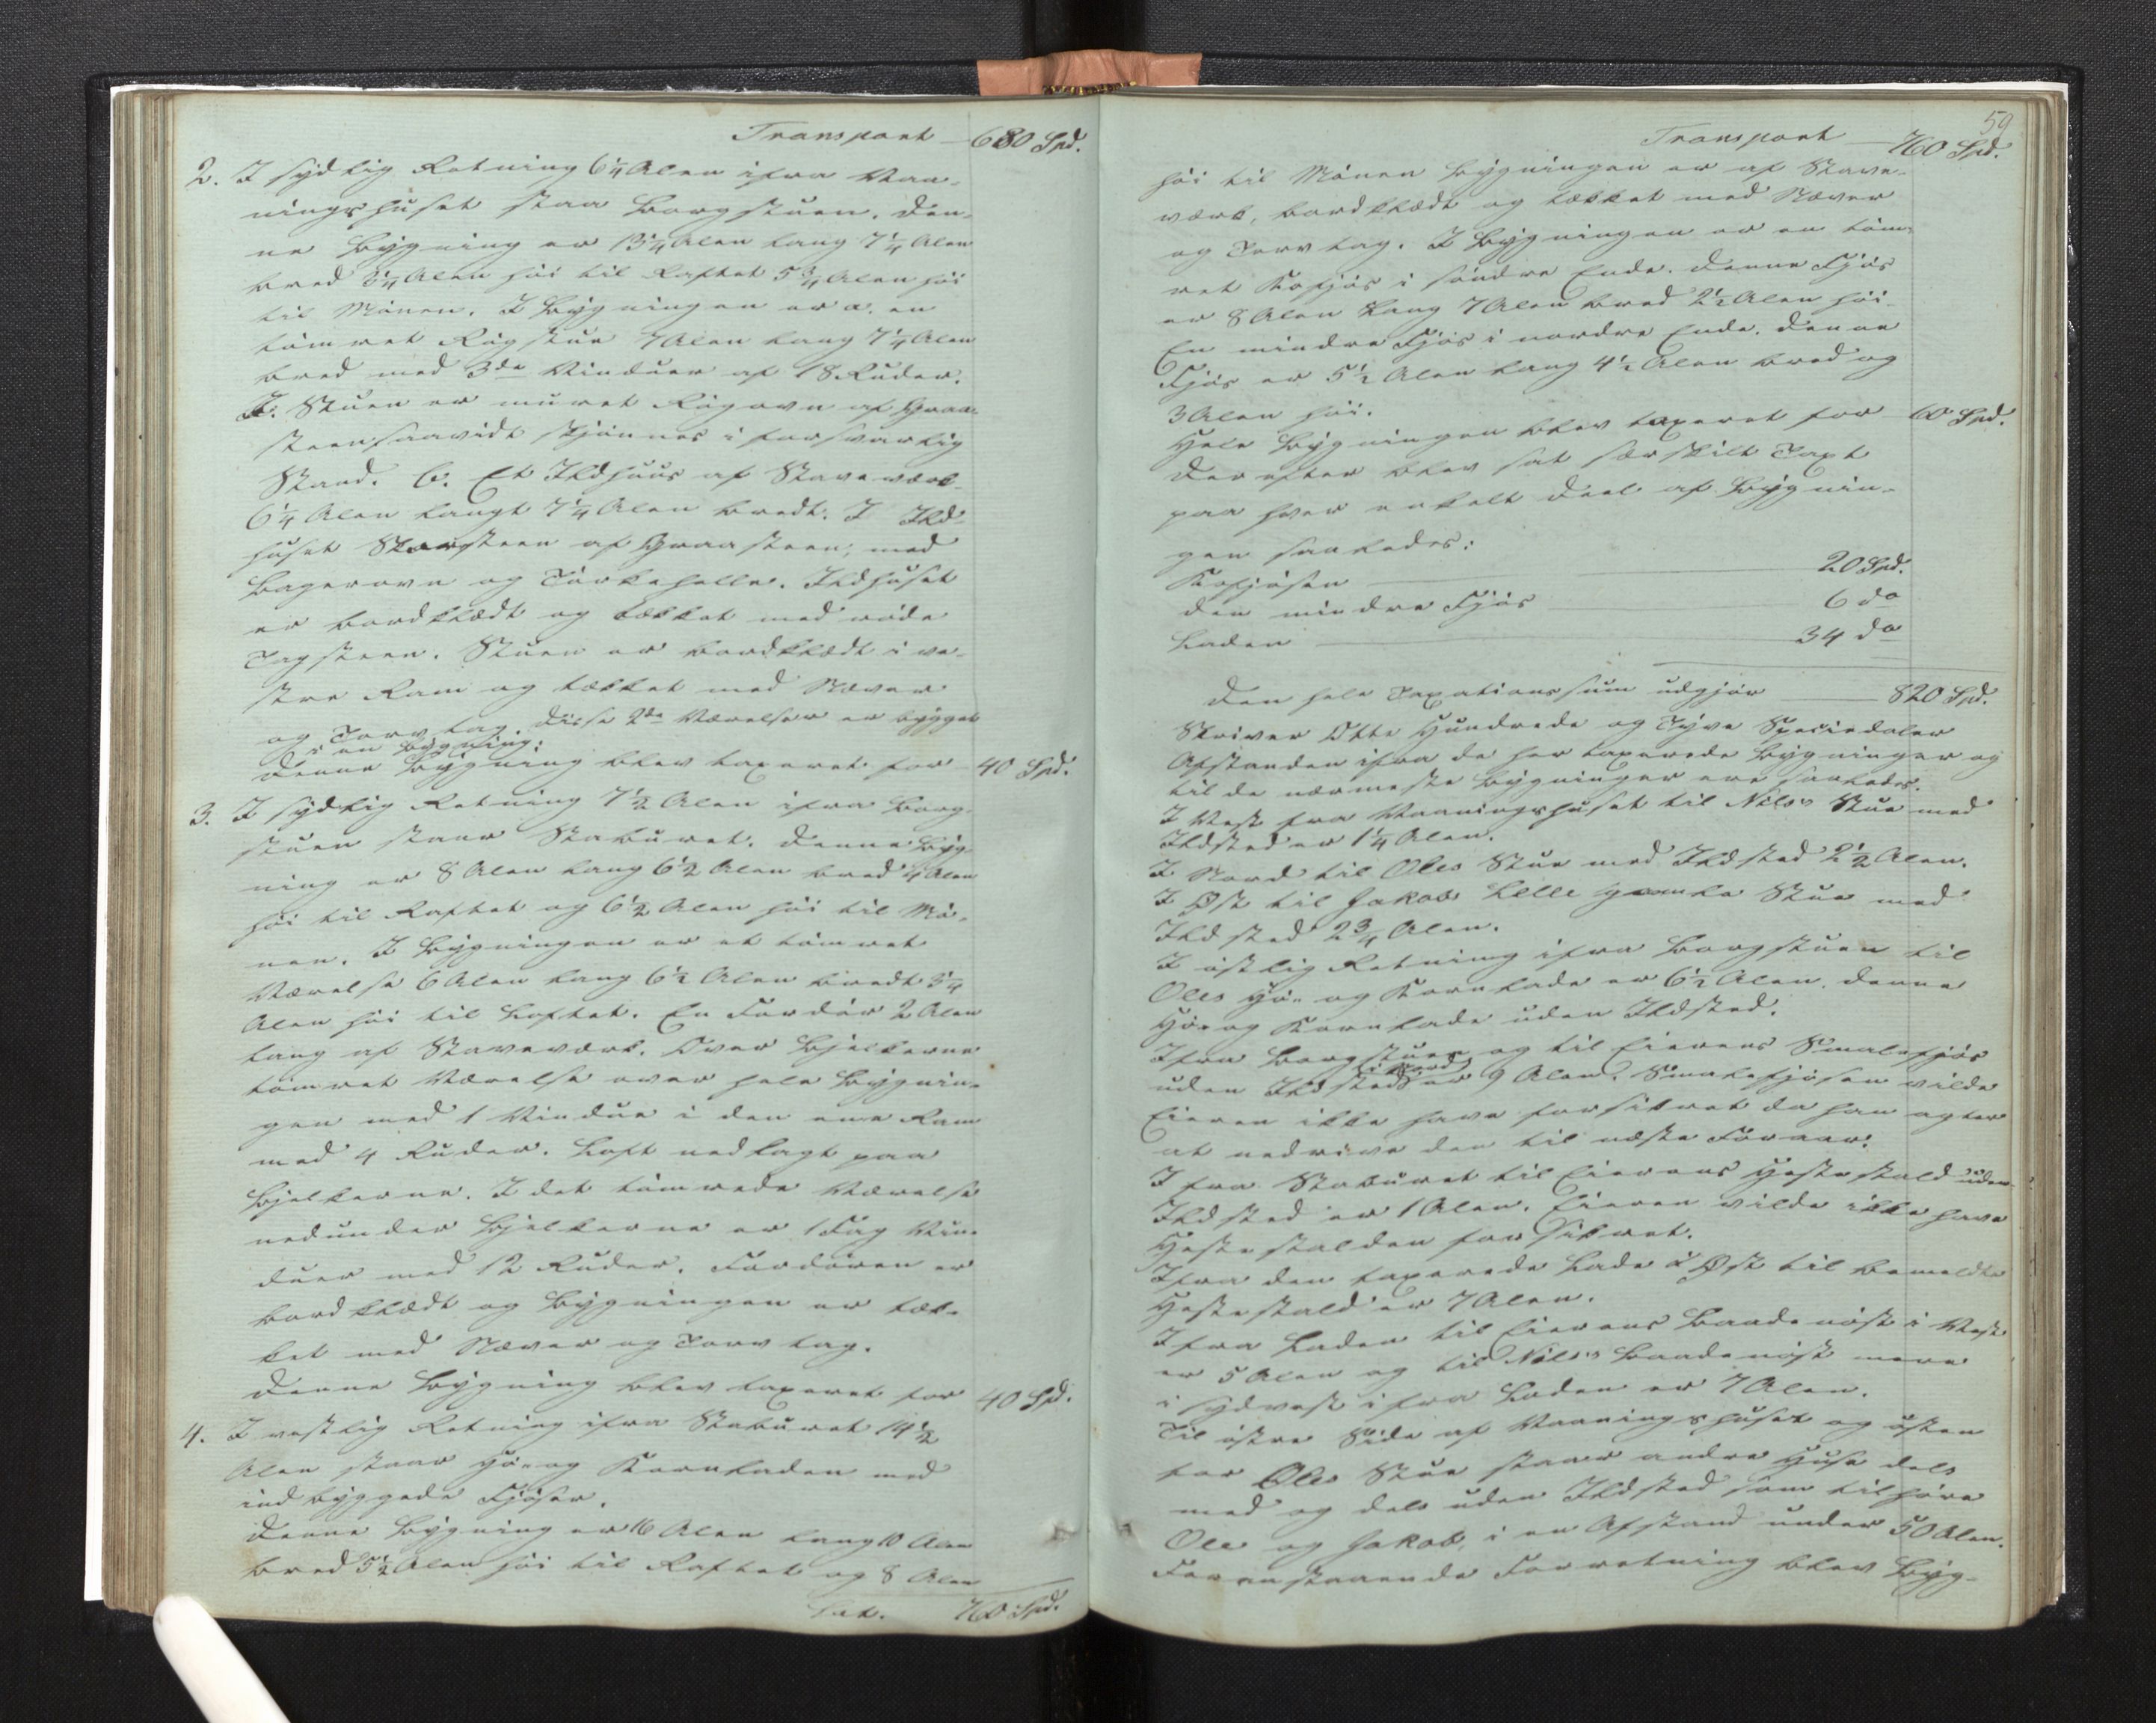 Transport 680 Spd.
2. I sydlig Retning 6 1/4 Alen ifra Vaa-
ningshuset staa Borgstuen. Den-
ne Bygning er 13 1/4 Alen lang 7 1/4 Alen
bred 3 1/4 Alen høi til Raftet 5 3/4 Alen høi
til Mönen. I Bygningen er a. en
tömret Rögstue 7 Alen lang 7 1/4 Alen
bred med 3de Vinduer af 18 Ruder.
I Stuen er muret Rögovn af Graa-
steen saavidt skjönnes i forsvarlig
Stand. b. Et Ildhuus af Stavværk
6 1/4 Alen langt 7 1/4 Alen bredt. I Ild-
huset Skorsteen af Graasteen, med
Bagerovn og Törkehelle. Ildhuset
er bordklædt og tækket med röde
Tagsteen. Stuen er bordklædt i ve-
stre Ram og tækket med Næver
og Torvtag. Disse 2de Værelser er bygget
i en Bygning.
Denne Bygning blev taxeret for 40 Spd.
3. I sydlig Retning 7 1/2 Alen ifra Borg-
stuen staar Staburet. Denne Byg-
ning er 8 Alen lang 6 1/2 Alen bred 4 Alen
høi til Raftet og 6 1/2 Alen høi til Mö-
nen. I Bygningen er et tömret
Værelse 6 Alen lang 6 1/2 Alen bredt 3 1/4
Alen høi til Loftet. En Fordör 2 Alen
lang af Stavværk. Over Bjelkerne
tömret Værelse over hele Bygnin-
gen med 1 Vindue i den ene Ram
med 4 Ruder. Loft nedlagt paa
Bjelkerne. I det tömrede Værelse
nedunder Bjelkerne er 1 Fag Vin-
duer med 12 Ruder. Fordören er
bordklædt og Bygningen er tæk-
ket med Næver og Torvtag.
Denne Bygning blev taxeret for 40 Spd.
4. I vestlig Retning ifra Staburet 14 1/2
Alen staar Hö- og Kornladen med
indbyggede Fjöser.
Denne Bygning er 16 Alen lang 10 Alen
bred 5 1/2 Alen høi til Raftet og 8 Alen
Lat. 760 Spd.
59
Transport 760 Spd.
høi til Mönen Bygningen er af Stave-
værk, bordklædt og tækket med Næver
og Torvtag. I Bygningen er en töm-
ret Kofjös i söndre Ende. Denne Fjös
er 8 Alen lang 7 Alen bred 2 1/2 Alen høi.
En mindre Fjös i nordre Ende. Denne
Fjös er 5 1/2 Alen lang 4 1/2 Alen bred og
3 Alen høi.
Hele Bygningen blev taxeret for 60 Spd.
Derefter blev sat særskilt Taxt
paa hver enkelt Deel af Bygnin-
gen saaledes:
Kofjösen 20 Spd.
den mindre Fjös 6 do
Laden 34 do
Den hele Taxationssum udgjör 820 Spd.
Skriver Otte Hundrede og Tyve Speciedaler
Afstanden ifra de her taxerede Bygninger og
til de nærmeste Bygninger ere saaledes.
I Vest fra Vaaningshuset til Nils's Stue med
Ildsted er 1 1/4 Alen.
I Nord til Oles Stue med Ildsted 2 1/2 Alen.
I Øst til Jakob Lelle gamle Stue med
Ildsted 2 3/4 Alen.
I östlig Retning ifra Borgstuen til
Oles Hö- og Kornlade er 6 1/2 Alen. Denne
Hö- og Kornlade uden Ildsted.
Ifra Borgstuen og til Eierens Smalefjös
i Nord
uden Ildsted er 9 Alen. Smalefjösen vilde
Eieren ikke have forsikret da han agter
at nedrive den til næste Foraar.
Ifra Staburet til Eierens Hestestald uden
Ildsted er 1 Alen. Eieren vilde ikke have
Hestestalden forsikret.
Ifra den taxerede Lade i Øst til bemeldte
Hestestald er 7 Alen.
Ifra Laden til Eierens Baadenöst i Vest
er 5 Alen og til Nils's Baadenöst mere
i sydvest ifra Laden er 7 Alen.
Til östre Side af Vaaningshuset og östen
for Oles Stue staar andre Huse dels
med og dels uden Ildsted som tilhöre
Ole og Jakob, i en Afstand under 50 Alen.
Foranstaaende Forretning blev Byg-